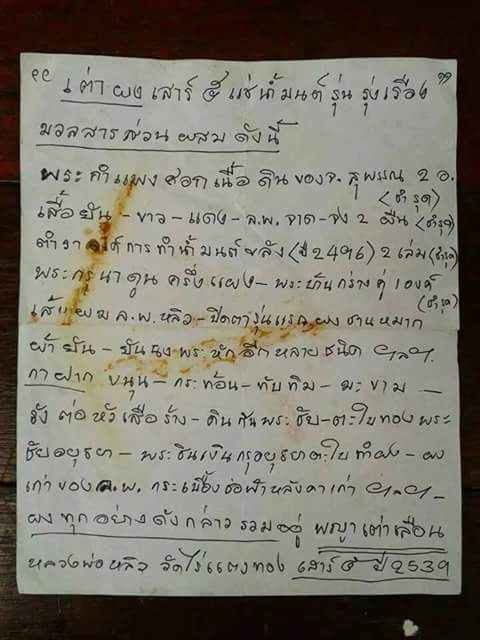 " เต่า ผง เสาร์ ๕ แช่น้ำมนต์ รุ่น รุ่งเรือง "
มวลสารส่วนผสม ดังนี้
พระกำแพงศอกเนื้อดินของจ. สุพรรณ 2 อ. (ชำรุด)
เสื้อยันต์ - ขาว - แดง - ล.พ. จาด - จง 2 ผืน (ชำรุด)
ตำรา การทำน้ำมนต์ขลัง (ปี 2496) 2 เล่ม (ชำรุด)
พระกรุนาดูน ครึ่งแผง - พระขุนกร่าง คู่ (ชำรุด)
ล.พ. หลิว - ปิดตารุ่นแรก ผง ชานหมาก
ผ้ายัน - ยันนง พระ หักอีกหลายชนิด ฯลฯ.
กาฝาก ขนุน - กระท้อน - ทับทิม - มะขาม -
รัง ต่อ หัวเสือร้าง - ดินก้นพระชัย - ตะไบทองพระ
ชัยอยุธยา - พระชินเงินกรุอยุธยาตะไบทำผง - ผง
เก่าของ ล.พ. กระเบื้องช่อฟ้าหลังคาเก่า ฯลฯ -
ผงทุกอย่างดังกล่าวรวมอยู่ พญาเต่าเลือน
หลวงพ่อหลิว วัดไร่แตงทอง เสาร์ ๕ ปี 2539